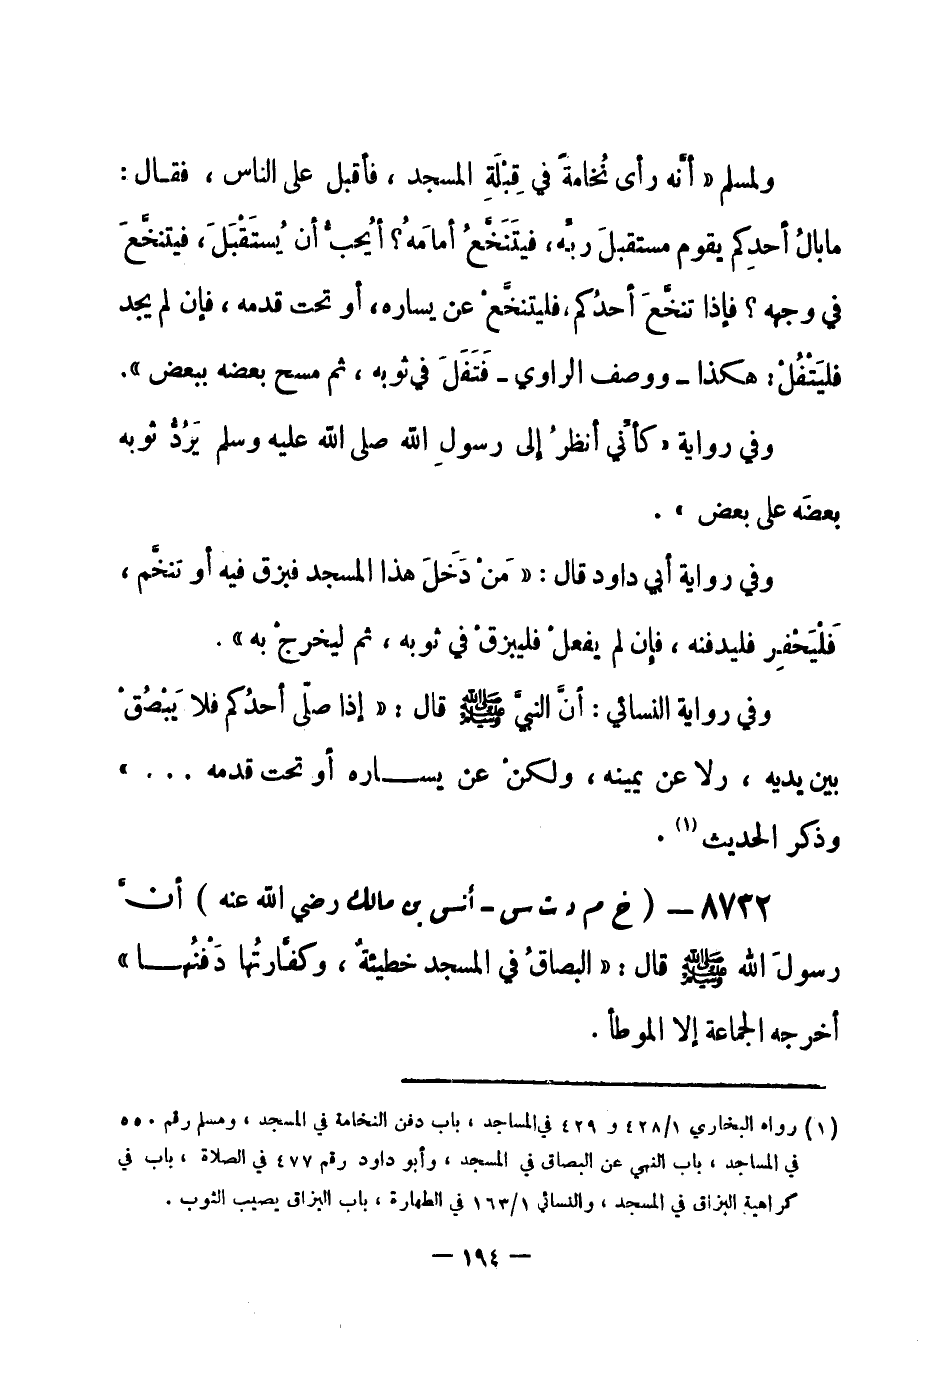 ولمسلم « أنَّه رأى نُخامةً في قِبْلَةِ المسجد ، فأقبل على الناس ، فقـال :
مابالُ أحدِكم يقوم مستقبلَ ربِّه، فيتَنَخَّعُ أمامَهُ؟ أيُحبُّ أن يُستَقْبَلَ، فيتنخَّعَ
في وجهه ؟ فإذا تنخَّعَ أحدُكم،فليتنخَّعْ عن يساره، أو تحت قدمه ، فإن لم يجد
فليَتْفُلْ : هكذا ـ ووصف الراوي ـ فَتَفَلَ في ثوبه ، ثم مسح بعضه ببعض ».
وفي رواية « كأنِّي أنظرُ إلى رسولِ الله صلى الله عليه وسلم يَرُدُّ ثوبه
بعضَه على بعض » .
وفي رواية أبي داود قال : « مَنْ دَخَلَ هذا المسجد فبزق فيه أو تنخَّم ،
فَلْيَحْفِر فليدفنه ، فإن لم يفعلْ فليبزقْ في ثوبه ، ثم ليخرجْ به » .
وفي رواية النسائي : أنَّ النبيَّ ﷺ قال : « إذا صلّى أحدُكم فلا يَبْصُقْ
بين يديه ، رلا عن يمينه ، ولكنْ عن يســاره أو تحت قدمه . . . »
وذكر الحديث (١) .
٨٧٣٢ ـ ( خ م د ت س ـ أنس بن مالك رضي الله عنه ) أنـَّ
رسولَ الله ﷺ قال : « البصاقُ في المسجد خطيئةٌ ، وكفَّارتُها دَفْنُهـا »
أخرجه الجماعة إلا الموطأ .
(١) رواه البخاري ١/‏٤٢٨ و ٤٢٩ في المساجد ، باب دفن النخامة في المسجد ، ومسلم رقم ٥٥٠
في المساجد ، باب النهي عن البصاق في المسجد ، وأبو داود رقم ٤٧٧ في الصلاة ، باب في
كراهية البزاق في المسجد ، والنسائي ١/‏١٦٣ في الطهارة ، باب البزاق يصيب الثوب .
— ١٩٤ —